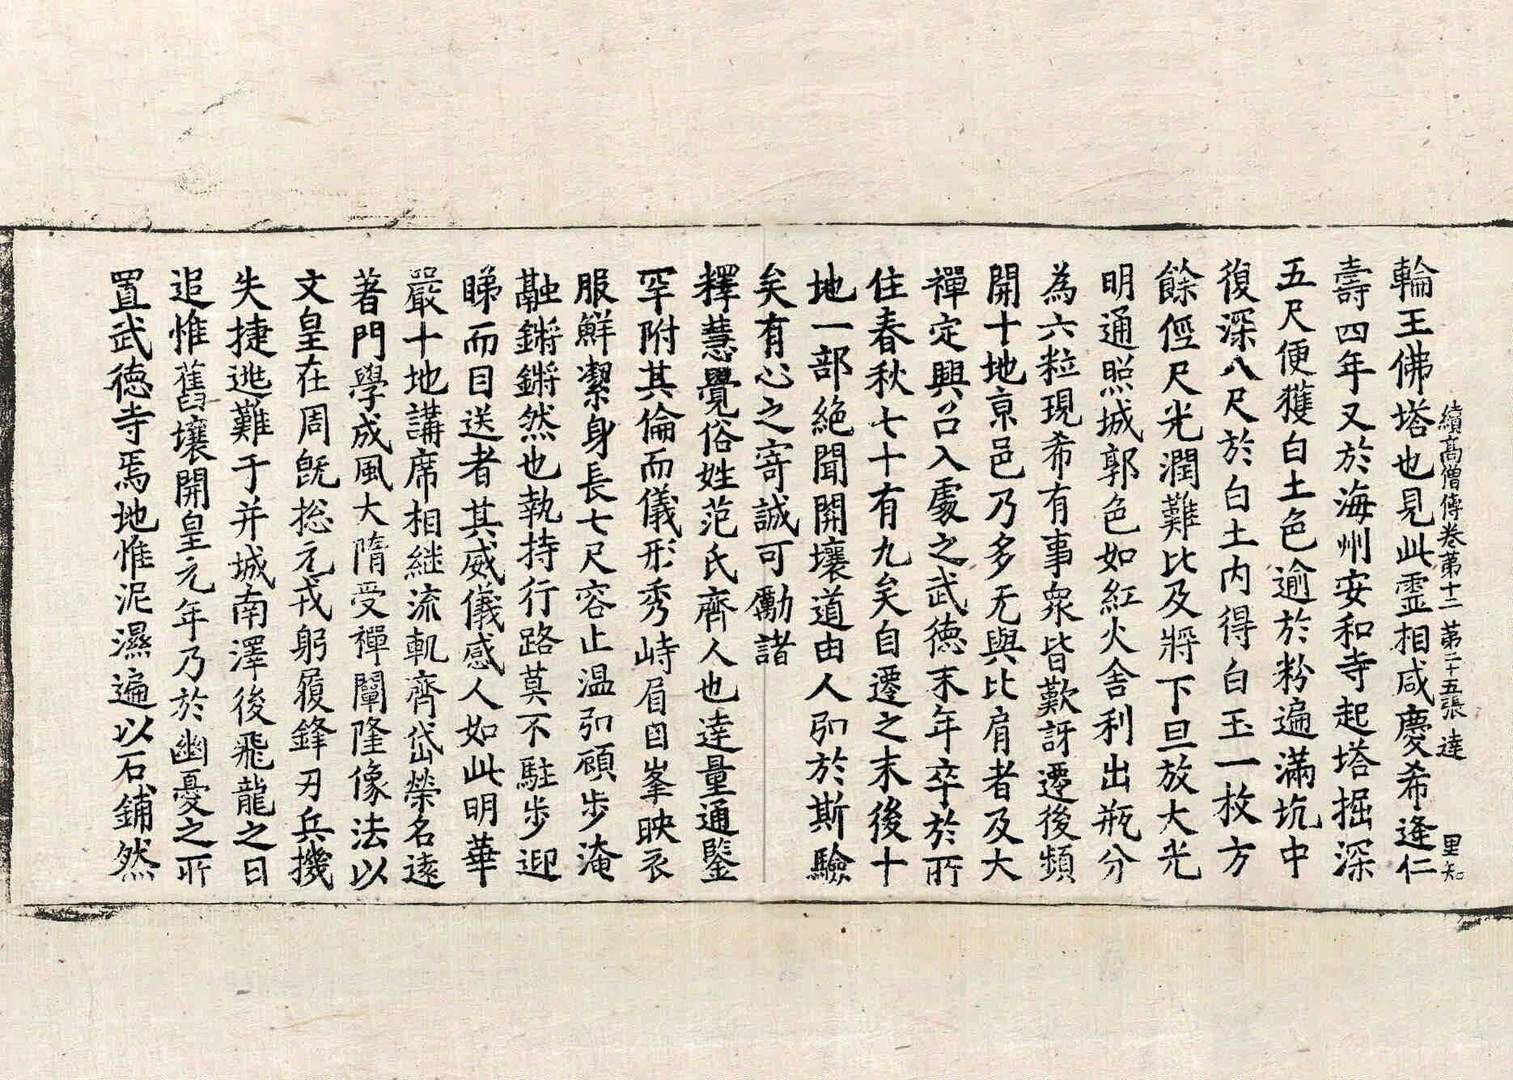 續高僧傳卷第十二 第二十五張 達 里知
輪王佛塔也見此靈相咸慶希逢仁
壽四年又於海州安和寺起塔掘深
五尺便獲白土色逾於粉遍滿坑中
復深八尺於白土內得白玉一枚方
餘徑尺光潤難比及將下旦放大光
明通照城郭色如紅火舍利出瓶分
為六粒現希有事衆皆歎訝遷後頻
開十地京邑乃多无與比肩者及大
禪定興召入處之武德末年卒於所
住春秋七十有九矣自遷之末後十
地一部絶聞開壤道由人弘於斯驗
矣有心之寄誠可勵諸
釋慧覺俗姓范氏齊人也達量通鑒
罕附其倫而儀形秀峙眉目峯映衣
服鮮潔身長七尺容止温弘顧步淹
融鏘鏘然也執持行路莫不駐步迎
睇而目送者其威儀感人如此明華
嚴十地講席相継流軌齊岱榮名遠
著門學成風大隋受禪闡隆像法以
文皇在周旣捴元戎躬履鋒刃兵機
失捷逃難于并城南澤後飛龍之日
追惟舊壤開皇元年乃於幽憂之所
置武德寺焉地惟泥濕遍以石鋪然